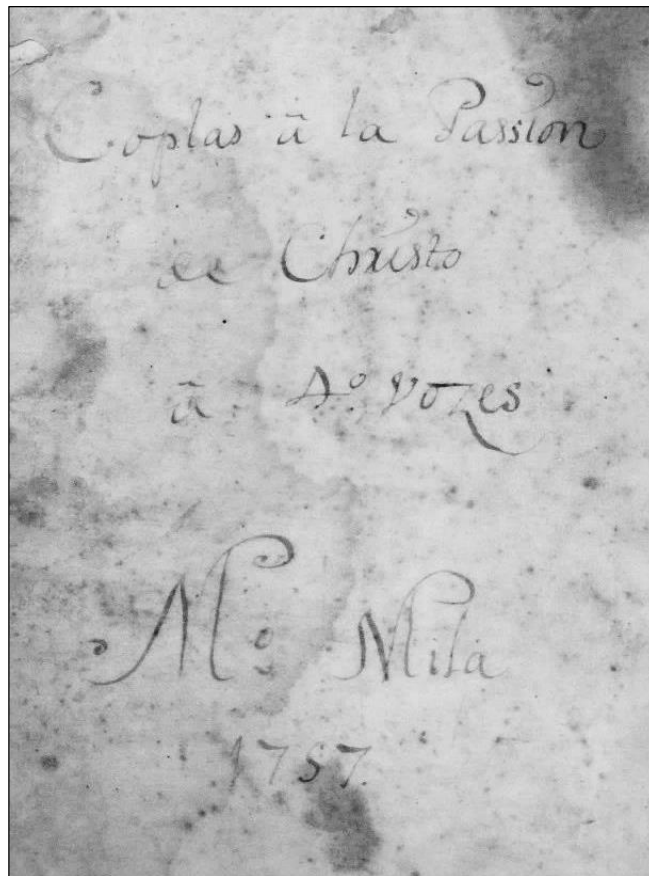 Coplas ã la Passion
de Christo
ã 4.º Vozes
M.º Mila
1757.